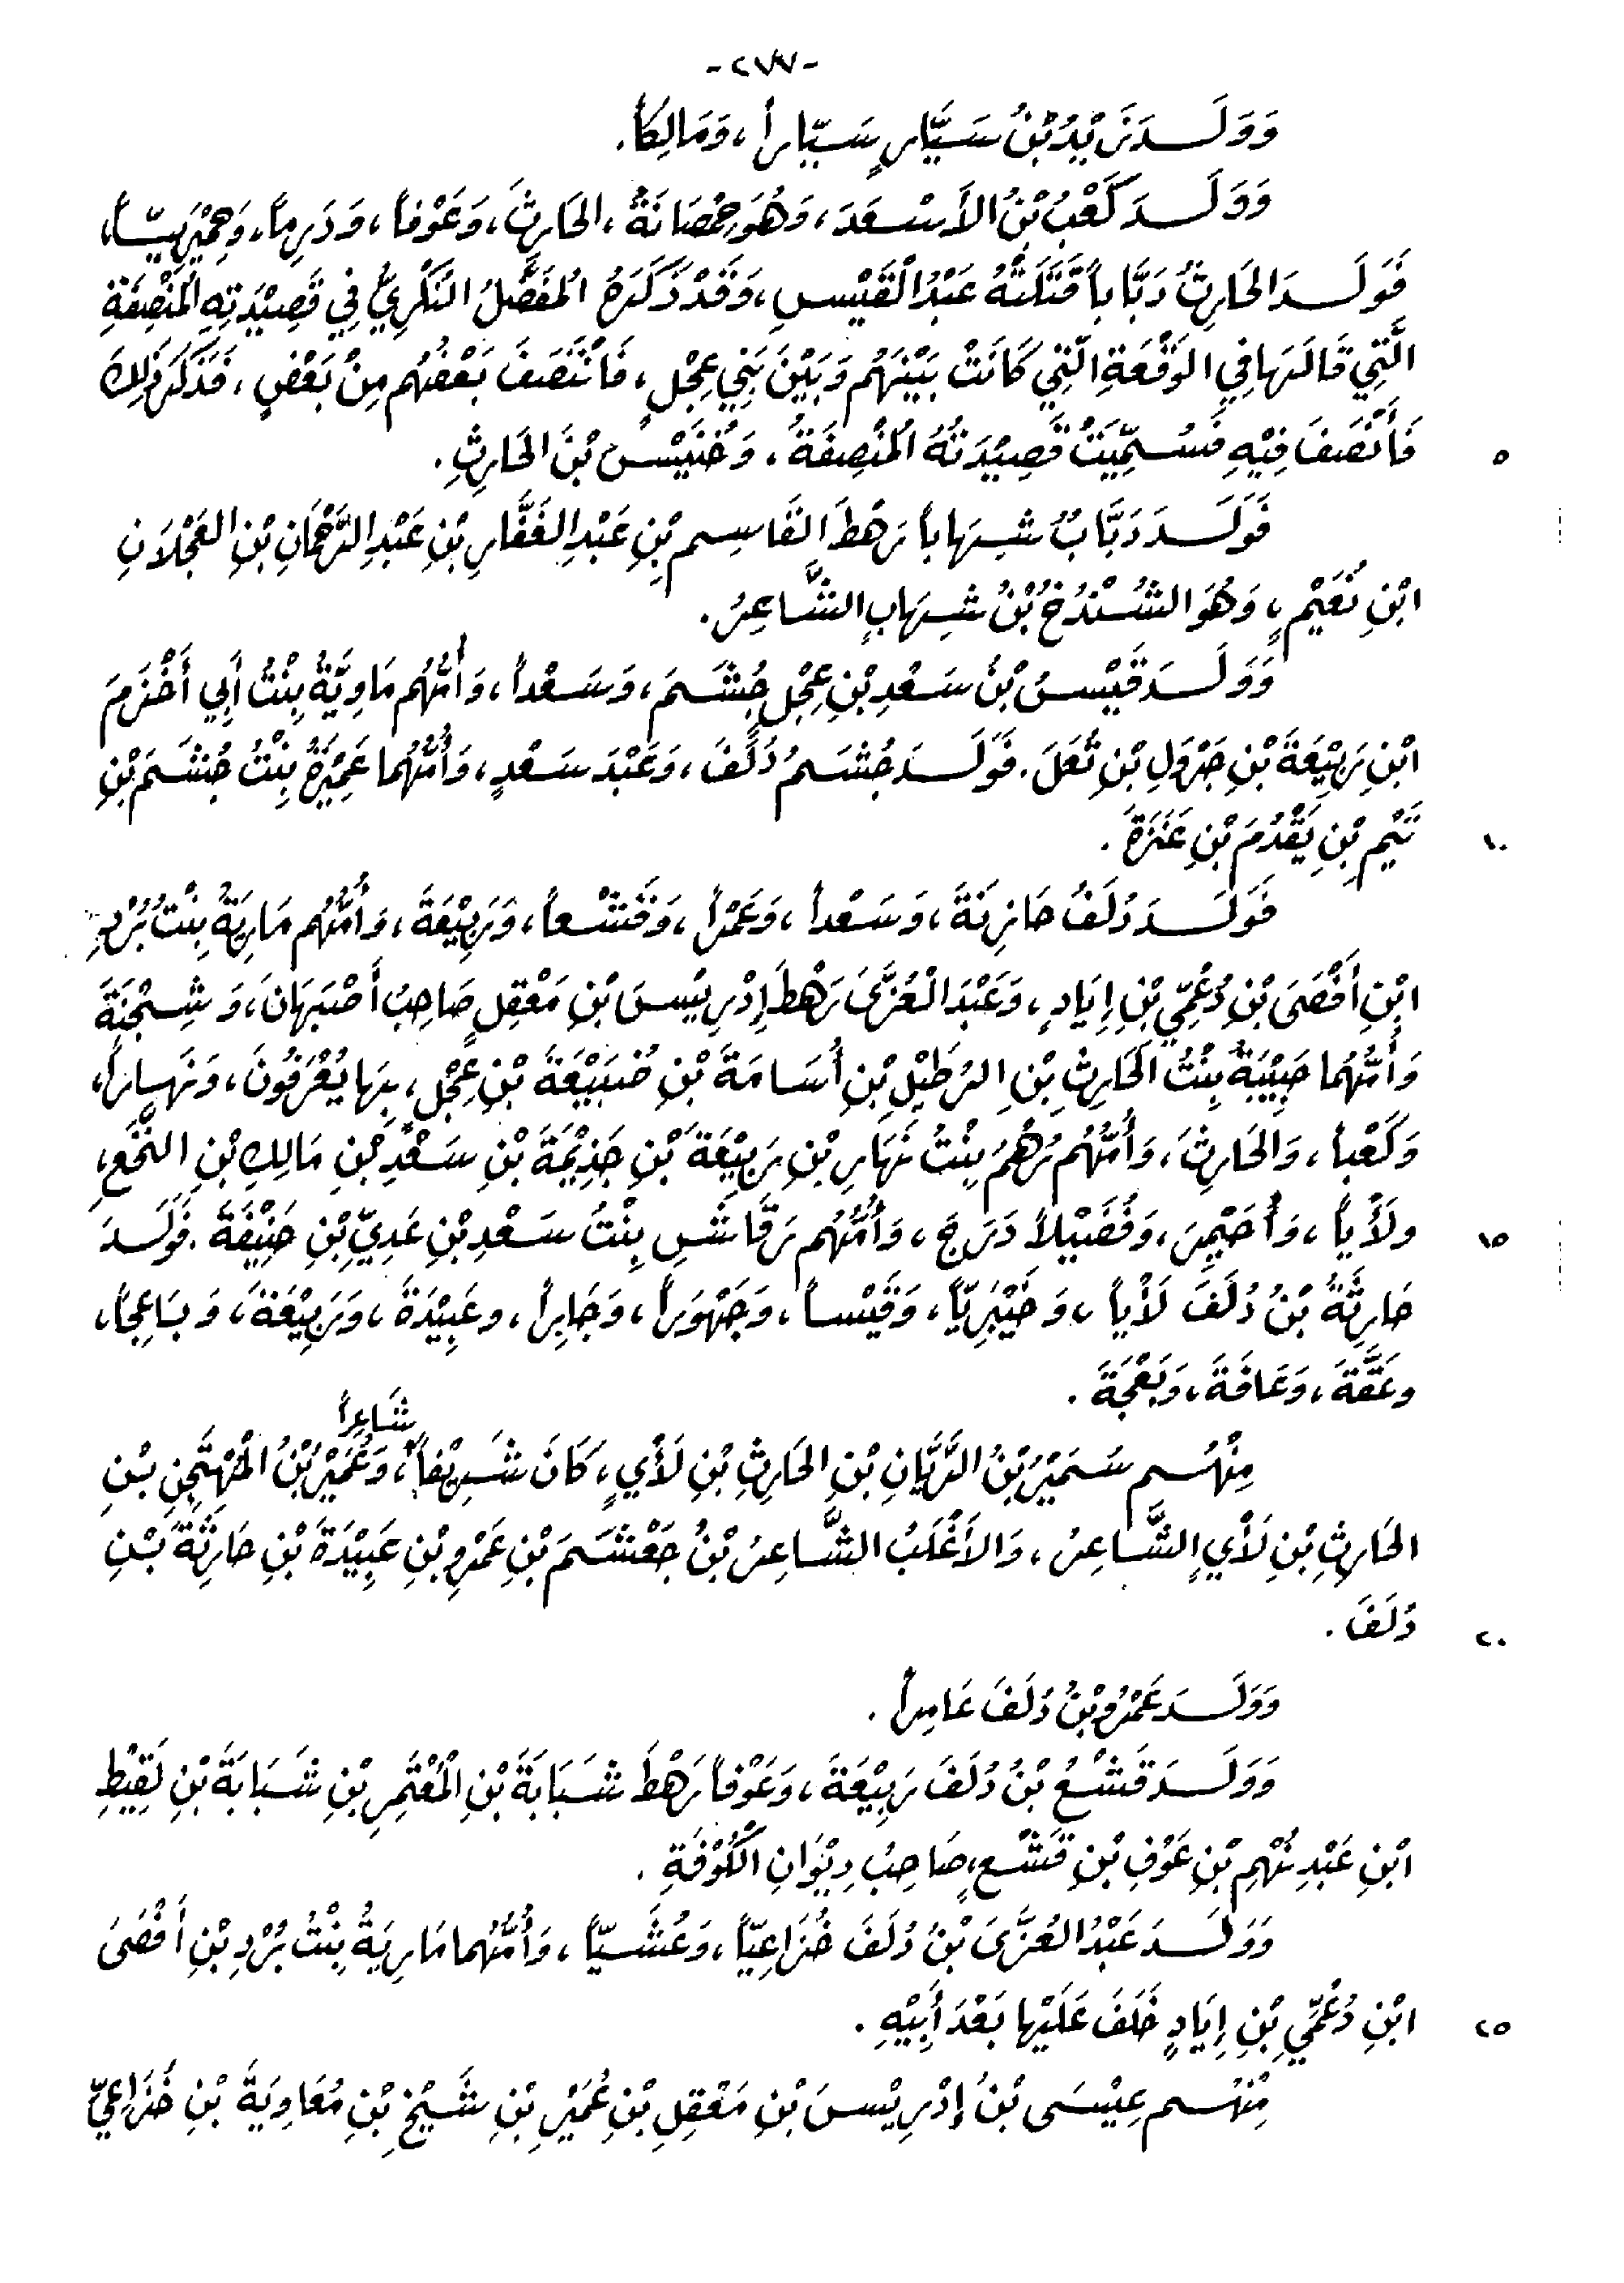 -٢٧٧-
وَوَلَـدَ زَيْدُ بْنُ سَيَّارٍ سَيّاراً، وَمَالِكاً.
وَوَلَـدَ كَعْبُ بْنُ الأَسْعَدَ، وَهُوَ حُمْصَانَةُ، الحَارِثَ، وَعَوْفاً، وَدَرِماً، وَحِمْيَرِيّاً،
فَوَلَـدَ الحَارِثُ دَبَّاباً قَتَلَتْهُ عَبْدُ الْقَيْسِ، وَقَدْ ذَكَرَهُ الْمُفَضَّلُ النُّكْرِيُّ فِي قَصِيْدَتِهِ الْمُنْصِفَةِ
الَّتِي قَالَهَا فِي الوَقْعَةِ الَّتِي كَانَتْ بَيْنَهُم وَبَيْنَ بَنِي عِجْلٍ، فَانْتَصَفَ بَعْضُهُم مِنْ بَعْضٍ، فَذَكَرَ ذَلِكَ
٥ فَأَنْصَفَ فِيْهِ فَسُمِّيَتْ قَصِيْدَتُهُ الْمُنْصِفَةَ، وَخُنَيْسَ بْنَ الحَارِثِ.
فَوَلَـدَ دَبَّابٌ شِهَاباً رَهْطَ القَاسِمِ بْنِ عَبْدِ الغَفَّارِ بْنِ عَبْدِ الرَّحْمَانِ بْنِ العَجْلَانِ
ابْنِ نُعَيْمٍ، وَهُوَ الشُّنْدُخُ بْنُ شِهَابٍ الشَّاعِرُ.
وَوَلَـدَ قَيْسُ بْنُ سَعْدِ بْنِ عِجْلٍ جُشَـمَ، وَسَعْداً، وَأُمُّهُم مَاوِيَّةُ بِنْتُ أَبِي أَخْزَمَ
ابْنِ رَبِيْعَةَ بْنِ جَرْوَلِ بْنِ ثُعَلَ. فَوَلَـدَ جُشَـمُ دُلَفَ، وَعَبْدَ سَعْدٍ، وَأُمُّهُما عَمِيْرَةُ بِنْتُ جُشَـمَ بْنِ
١٠ تَيْمِ بْنِ يَقْدُمَ بْنِ عَنَزَةَ.
فَوَلَـدَ دُلَفُ حَارِثَةَ، وَسَعْداً، وَعَمْراً، وَقَشْعاً، وَرَبِيْعَةَ، وَأُمُّهُم مَارِيَةُ بِنْتُ بُرْدِ
ابْنِ أَفْصَى بْنِ دُعْمِيِّ بْنِ إِيَادٍ، وَعَبْدَ الْعُزَّى رَهْطَ إِدْرِيْسَ بْنِ مَعْقِلٍ صَاحِبُ أَصْبَهَانَ، وَشِجْنَةَ
وَأُمُّهُمَا حَبِيْبَةُ بِنْتُ الحَارِثِ بْنِ الرَطِيْلِ بْنِ أُسَامَةَ بْنِ ضُبَيْعَةَ بْنِ عِجْلٍ، بِهَا يُعْرَفُونَ، وَنَهَاراً،
وَكَعْباً، وَالحَارِثَ، وَأُمُّهُم رُهْمُ بِنْتُ نَهَارِ بْنِ رَبِيْعَةَ بْنِ جَذِيْمَةَ بْنِ سَعْدِ بْنِ مَالِكِ بْنِ النَّخَعِ،
١٥ ولَأْياً، وَأُحَيْمِرَ، وَفُضَيْلاً دَرَجَ، وَأُمُّهُم رَقَاشِ بِنْتُ سَعْدِ بْنِ عَدِيِّ بْنِ حَنِيْفَةَ. فَوَلَـدَ
حَارِثَةُ بْنُ دُلَفَ لَأْياً، وَخَيْبَرِيّاً، وَقَيْساً، وَجَهْوَراً، وَجَابِراً، وعَبِيْدَةَ، وَرَبِيْعَةَ، وَبَاعِجاً،
وعَقَّةَ، وَعَافَةَ، وَبَعْجَةَ.
مِنْهُـم سَمَيْرُ بْنُ الرَّيَّانِ بْنِ الحَارِثِ بْنِ لَأْيٍ، كَانَ شَرِيْفاً شَاعِراً، وَعُمَيْرُ بْنُ الْمُهَتَّجِنِ بْنِ
الحَارِثِ بْنِ لَأْيٍ الشَّاعِرُ، وَالأَغْلَبُ الشَّاعِرُ بْنُ جَعْشَـمَ بْنِ عَمْرِو بْنِ عَبِيْدَةَ بْنِ حَارِثَةَ بْـنِ
٢٠ دُلَفَ.
وَوَلَـدَ عَمْرُو بْنُ دُلَفَ عَامِراً.
وَوَلَـدَ قَشْعُ بْنُ دُلَفَ رَبِيْعَةَ، وَعَوْفاً رَهْطَ شَبَابَةَ بْنِ الْمُعْتَمِرِ بْنِ شَبَابَةَ بْنِ لَقِيْطِ
ابْنِ عَبْدِ نُهْمِ بْنِ عَوْفِ بْنِ قَشْعٍ، صَاحِبُ دِيْوَانِ الْكُوْفَةِ.
وَوَلَـدَ عَبْدُ العُزَّى بْنُ دُلَفَ خُزَاعِيّاً، وَعُشَـيّاً، وَأُمُّهُما مَارِيَةُ بِنْتُ بُرْدِ بْنِ أَفْصَى
٢٥ ابْنِ دُعْمِيِّ بْنِ إِيَادٍ خَلَفَ عَلَيْها بَعْدَ أَبِيْهِ.
مِنْهُـم عِيْسَى بْنُ إِدْرِيْسَ بْنِ مَعْقِلِ بْنِ عُمَيْرِ بْنِ شَيْخِ بْنِ مُعَاوِيَةَ بْنِ خُزَاعِيِّ